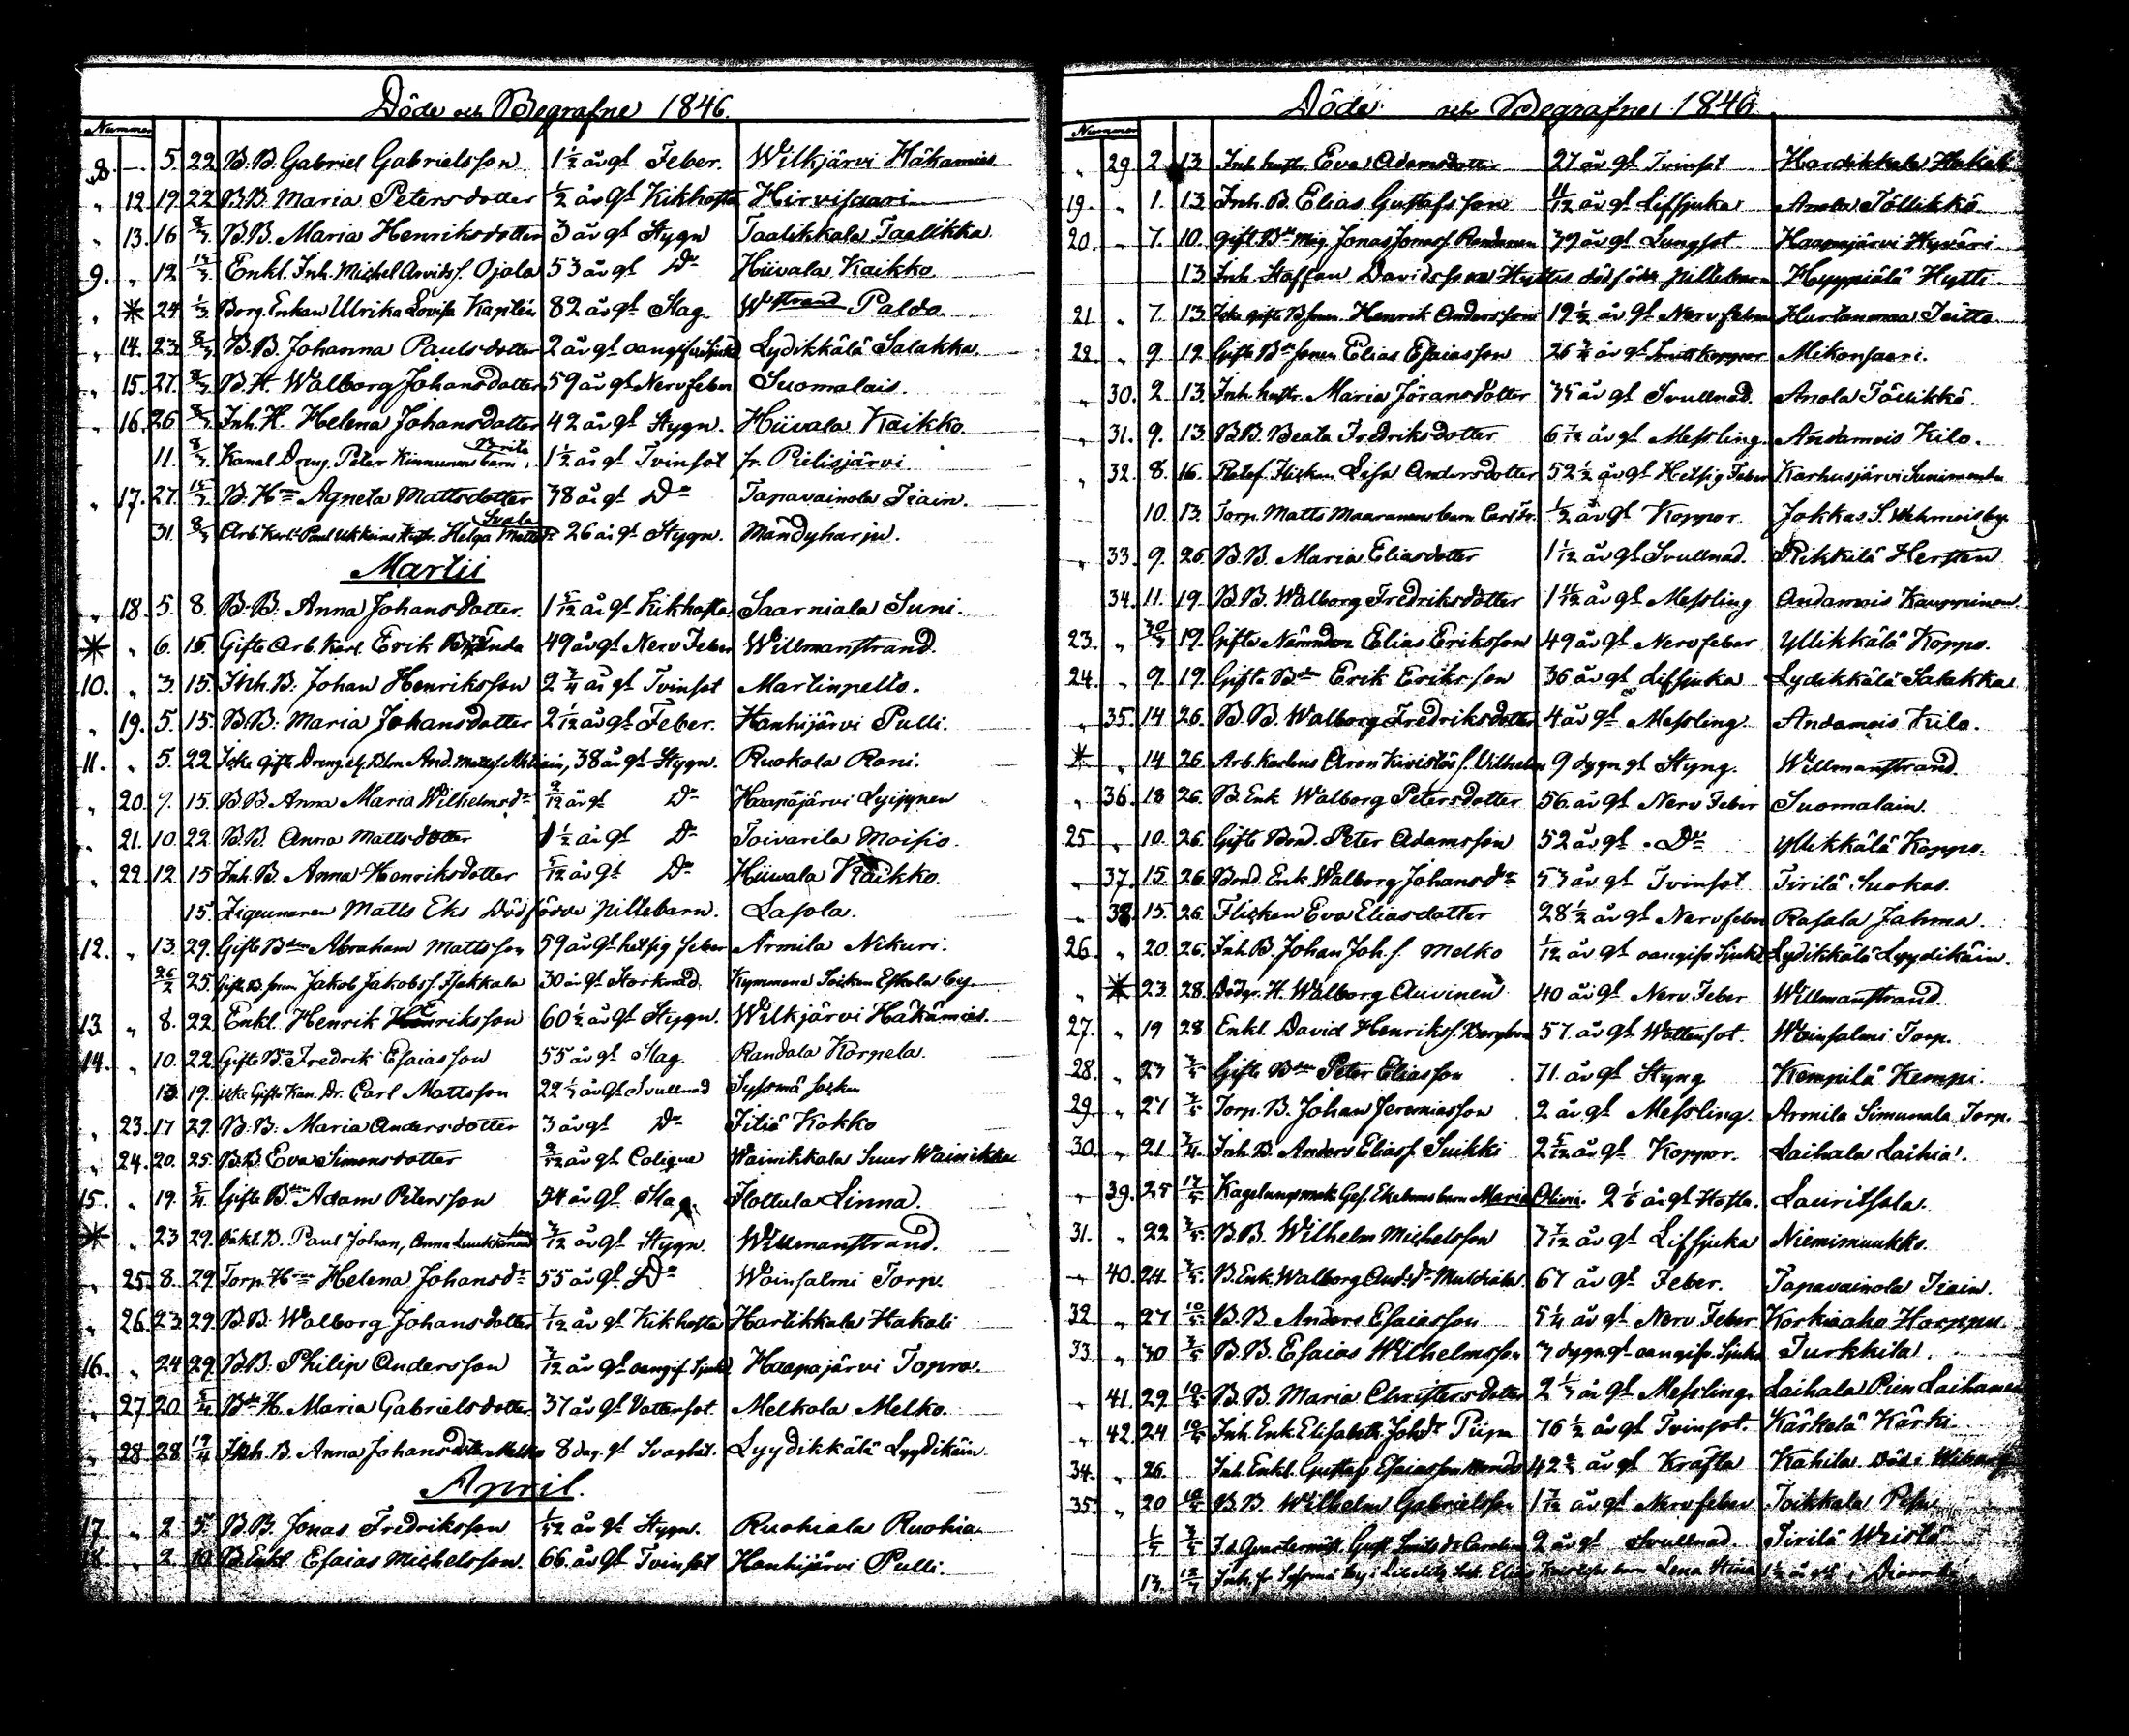 Döde och Begrafne 1846.
Nummer
8. — 5. 22. B. B. Gabriel Gabrielsson 1 1/2 år gl Feber. Wilkjärvi Häkämies
" 12. 19. 22. B. B. Maria Petersdotter 1/2 år gl Kikhosta Hirvisaari
" 13. 16 8/3 B. B. Maria Henriksdotter 3 år gl Stygn Taalikkala Taalikka
9. " 12 15/3 Enkl. Inh. Michel Arvidss. Ojala 53 år gl Do Hiivala Kaikko
" * 24 1/3 Borg. Enkan Ulrika Lovisa 82 år gl Slag. Wstrand Paldo.
" 14. 23. 8/3 B. B. Johanna Paulsdotter 2 år gl oangifn Sjukd Lydikkälä Salakka.
" 15. 27. 8/3 B. H. Walborg Johansdotter 59 år gl Nervfeber Suomalais.
" 16. 26 8/3 Inh. H. Helena Johansdotter 42 år gl Stygn. Hiivala Kaikko.
11. 8/3 Kanal Dreng. Peter Kinnunens barn Brita 1 1/2 år gl Tvinsot fr. Pielisjärvi
" 17. 27. 15/3 B. Hru Agneta Mattsdotter 38 år gl Do Tapavainola Iiain.
31. 8/3 Arb. Karl. Paul Ukkoins Hustr. Helga 26 år gl Stygn. Mändyharju.
Martii
" 18. 5. 8. B. B. Anna Johansdotter. 1 5/12 år gl Kikhosta Saarniala Suni.
* " 6. 15. Gifte Arb. Karl. Erik 49 år gl Nerv Feber Willmanstrand.
10. " 3. 15. Inh. B. Johan Henriksson 2 3/4 år gl Tvinsot Martinpelto.
" 19. 5. 15. B. B. Maria Johansdotter 2 1/12 år gl Feber. Hanhijärvi Pulli.
11. " 5. 22 Icke gifte Dreng. And. Mattss. 38 år gl Stygn. Ruokola Roni.
" 20. 9. 15. B. B. Anna Maria Wilhelmsdr 9/12 år gl Do Haapajärvi Lyijynen
" 21. 10. 22. B. B. Anna Mattsdotter 1 1/2 år gl Do Toivarila Moisio.
" 22. 12. 15 Inh. B. Anna Henriksdotter 5/12 år gl Do Hiivala Kaikko.
15. Zigeunaren Matts Eks Dödfödde piltebarn. Lasola.
12. " 13. 29. Gifte Bden Abraham Mattsson 59 år gl hetsig feber Armila Nikuri.
26/2 25. Gifte B. sonen Jakob Jakobss. 30 år gl Kymmene Socken Eskola by.
13. " 8. 22. Enkl. Henrik Henriksson 60 1/2 år gl Stygn. Wilkjärvi Häkämies.
14. " 10. 22. Gifte Bn Fredrik Esaiasson 55 år gl Slag. Randala Korpela.
19. icke Gifte Kan. Dr. Carl Mattsson 22 1/2 år gl Svullnad Syssmä socken
" 23. 17 29. B. B. Maria Andersdotter 3 år gl Do Iitiä Kokko
" 24. 20. 25. B. B. Eva Simonsdotter 9/12 år gl Colique Wainikkala Suur Wainikka
15. " 19. 5/4 Gifte Bden Adam Petersson 54 år gl Slag. Hottula Linna.
* " 23 29. B. Paul Johan, Anna 3/12 år gl Stygn. Willmanstrand.
" 25. 8. 29. Torp. Hru Helena Johansdr 55 år gl Do Woinsalmi Torp.
" 26. 23. 29. B. B. Walborg Johansdotter 1/12 år gl Kikhosta Hartikkala Hakali
16. " 24 29. B. B. Philip Andersson 3/12 år gl oangif. Sjukd. Haapajärvi Topro.
" 27 20. 5/4 Bde H. Maria Gabrielsdotter 37 år gl Vattersot. Melkola Melko.
" 28. 28. 19/4 Inh. B. Anna Johansdotter Melko 8 dag. gl Svaghet. Lyydikkälä Lyydikäin.
April.
17. " 2. 5. B. B. Jonas Fredriksson 1/12 år gl Stygn. Ruohiala Ruohia.
18. " 2. 10. B. Enkl. Esaias Michelsson. 66 år gl Tvinsot Hanhijärvi Pulli.
Döde och Begrafne 1846.
Nummer
" 29. 2. 13. Inh. hustr. Eva Adamsdotter 27 år gl Tvinsot Hardikkala Hakali
19. " 1. 13. Inh. B. Elias Gustafsson 11/12 år gl Lifsjuka Anola Töllikkö.
20. " 7. 10. Gift. Jonas Jonass. 39 år gl Lungsot Haapajärvi Hyväri.
13. Inh. Staffan Davidsson Hyttis dödfödde piltebarn Hyppiälä Hytti.
21. " 7. 13. Icke gifte B. sonen. Henrik Andersson 19 1/2 år gl Nervfeber Hurtanmaa Teitto.
22. " 9. 19. Gifte Bde sonen Elias Esaiasson 26 3/4 år gl Smittkoppor Mikonsaari.
" 30. 2. 13. Inh. hustr. Maria Jöransdotter 35 år gl Svullnad. Anola Töllikkö.
" 31. 9. 13. B. B. Beata Fredriksdotter 6 1/12 år gl Messling. Andamois Kilo.
" 32. 8. 16. Flickan Lisa Andersdotter 52 1/2 år gl Hetsig Feber Karhusjärvi
10. 13. Torp. Matts Maaranens barn Carl Fr. 1/2 år gl Koppor. Jokkas S.
" 33. 9. 26. B. B. Maria Eliasdotter 1 1/12 år gl Svullnad. Rikkilä Hersten
34. 11. 19. B. B. Walborg Fredriksdotter 1 11/12 år gl Messling Andamois Kauppinen.
23. " 30/3 19. Gifte Nämndem Elias Eriksson 49 år gl Nervfeber Yllikkälä Koppo.
24. " 9. 19. Gifte Bden Erik Eriksson 36 år gl Lifsjuka Lydikkälä Salakka.
" 35. 14. 26. B. B. Walborg Fredriksdotter 4 år gl Messling. Andamois Kilo.
* " 14 26. Arb. Karlens Aron Kivistös s. Vilhelm 9 dygn gl Styng. Willmanstrand.
" 36. 18 26. B. Enk. Walborg Petersdotter 56 år gl Nerv Feber Suomalain.
25 " 10. 26. Gifte Bond. Peter Adamsson 52 år gl Do Yllikkälä Koppo.
" 37. 15. 26. Bond. Enk. Walborg Johansdr 53 år gl Tvinsot Tirilä Suokas.
" 38. 15. 26. Flickan Eva Eliasdotter 28 1/2 år gl Nervfeber Rasala Jahma.
26. " 20. 26. Inh. B. Johan Joh. s. Melko 1/12 år gl oangifn Sjukd. Lydikkälä Lyydikäin.
" * 23. 28. H. Walborg Auvinen 40 år gl Nerv Feber Willmanstrand.
27. " 19 28. Enkl. David Henrikss. 57 år gl Wattensot. Woinsalmi Torp.
28. " 27 3/5 Gifte Bden Peter Eliasson 71 år gl Styng Kempilä Kempi.
29. " 27 3/5 Torp. B. Johan Jeremiasson 2 år gl Messling. Armila Simunala Torp.
30. " 21 Inh. B. Anders Eliass. Suikki 2 5/12 år gl Koppor. Laihala Laihia.
" 39. 25 17/5 Ekholms barn Maria Olivia. 2 1/5 år gl Hosta. Lauritsala.
31. " 22 3/5 B. B. Wilhelm Michelsson 3 7/12 år gl Lifsjuka Niemimuukko.
" 40. 24. 3/5 B. Enk. Walborg And:dr 67 år gl Feber. Tapavainola Iiain.
32. " 27 10/5 B. B. Anders Esaiasson 5 1/4 år gl Nerv Feber Korkiaaho Horppu.
33. " 30 3/5 B. B. Esaias Wilhelmsson 3 dygn gl oangifn Sjukd. Turkkila.
" 41. 29. 10/5 B. B. Maria Christersdotter 2 1/3 år gl Messling. Laihala Pien Laihanen
" 42. 24 10/5 Inh. Enk. Elisabeth Johdr 76 1/2 år gl Tvinsot. Kärkelä Kärki
34. " 26. Inh. Enkl. Gustaf Esaiasson 42 år gl Kräfta Kahila. Död i Wiborg
35. " 20 10/5 B. B. Wilhelm Gabrielsson 1 7/12 år gl Nervfeber Toikkala
1/5 3/5 2 år gl Svullnad. Tirilä
13. Lena Stina 1 1/2 år gl i